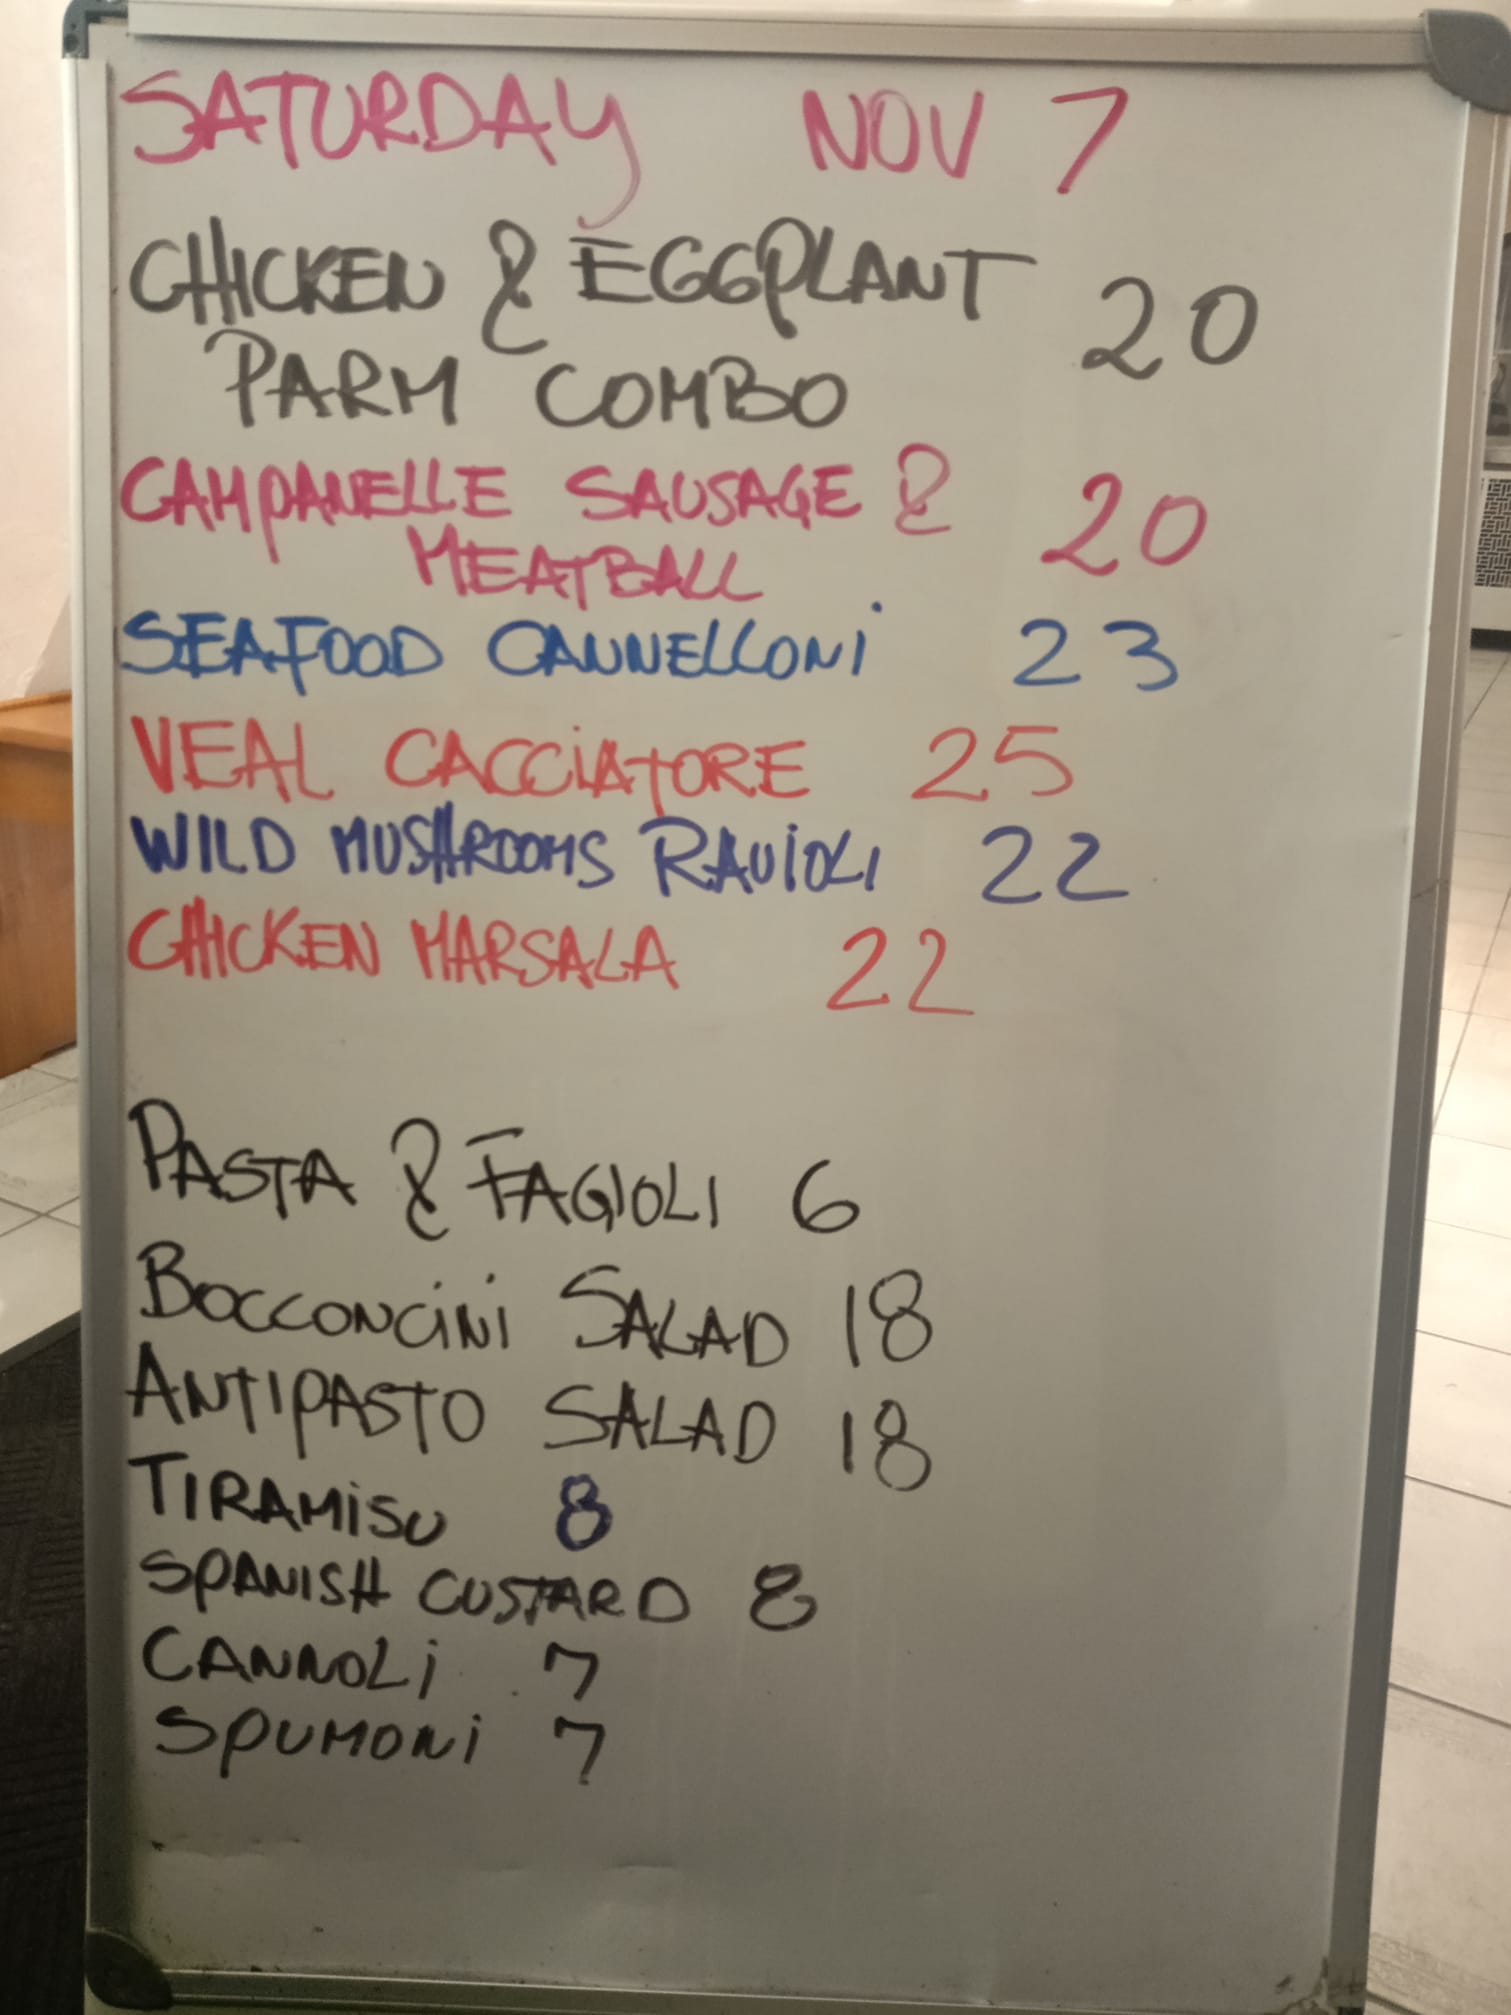 SATURDAY NOV 7
CHICKEN & EGGPLANT 20
PARM COMBO
CAMPANELLE SAUSAGE & 20
MEATBALL
SEAFOOD CANNELLONI 23
VEAL CACCIATORE 25
WILD MUSHROOMS RAVIOLI 22
CHICKEN MARSALA 22
PASTA & FAGIOLI 6
BOCCONCINI SALAD 18
ANTIPASTO SALAD 18
TIRAMISU 8
SPANISH CUSTARD 8
CANNOLI 7
SPUMONI 7